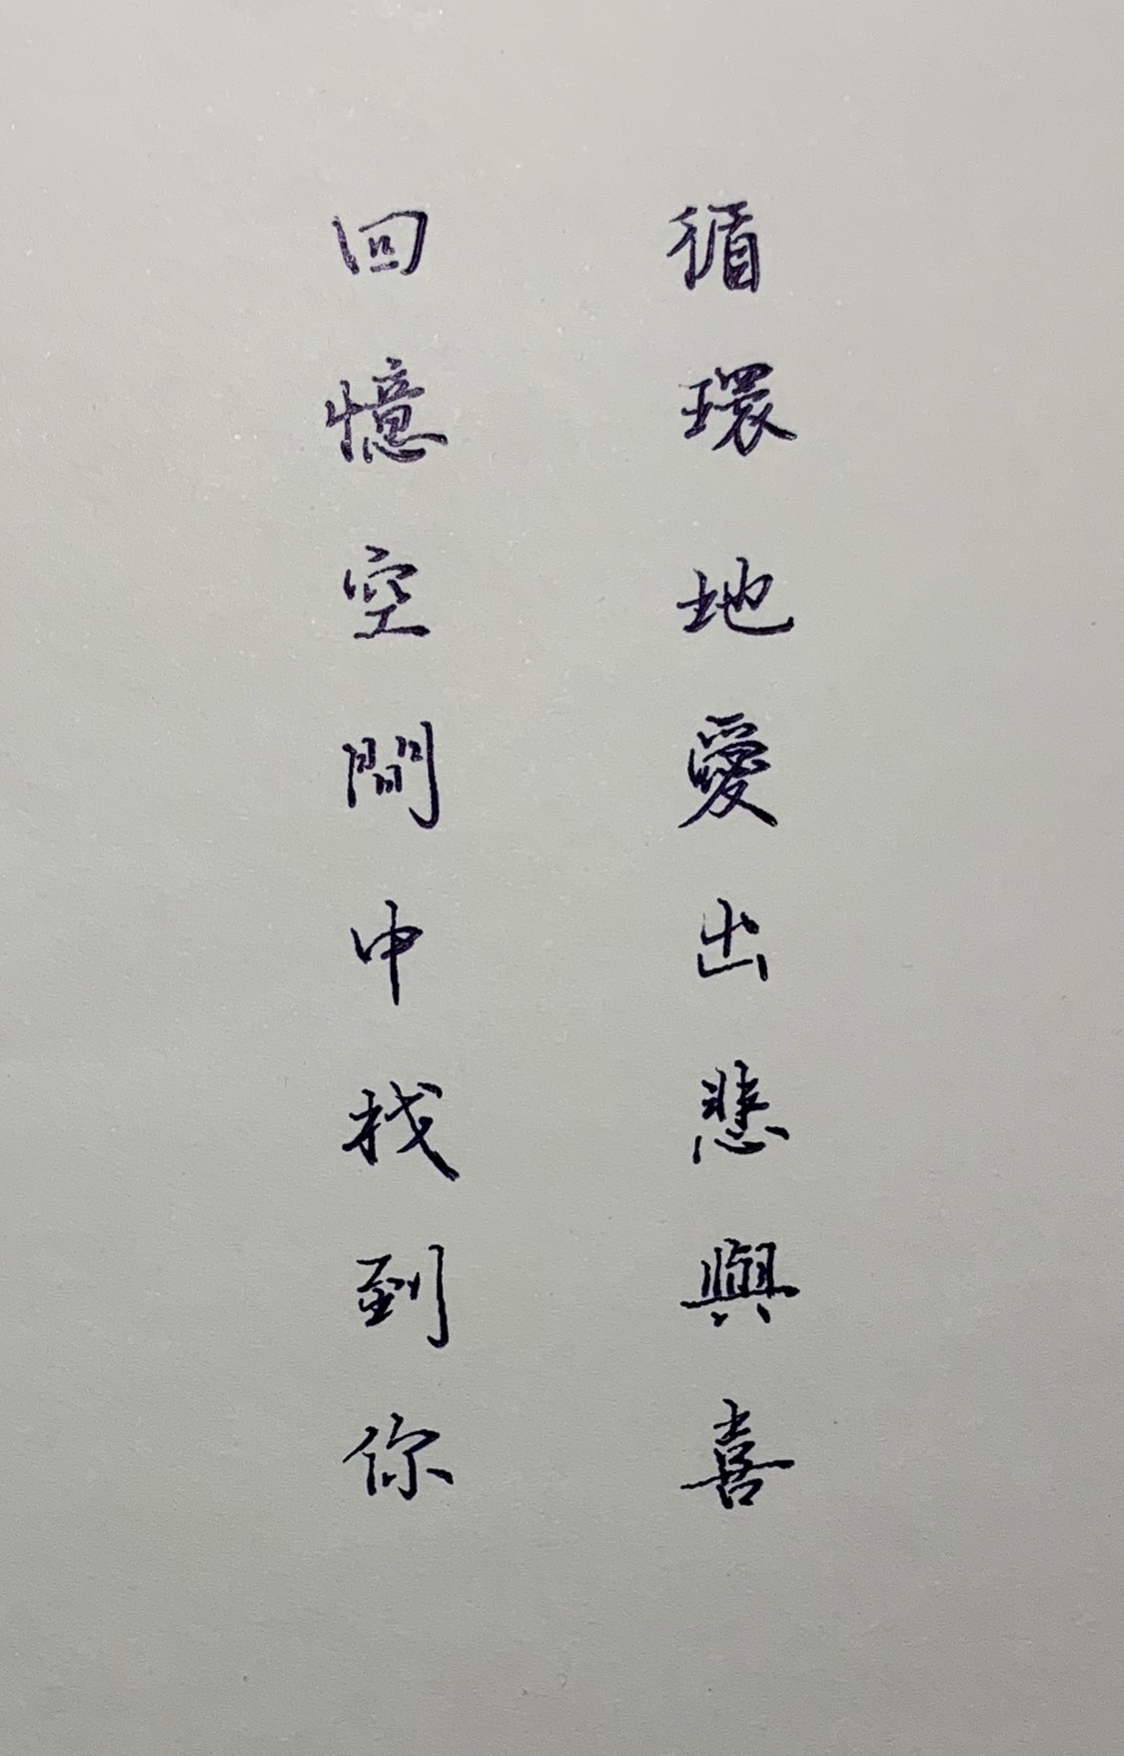 循環地愛出悲與喜
回憶空間中找到你